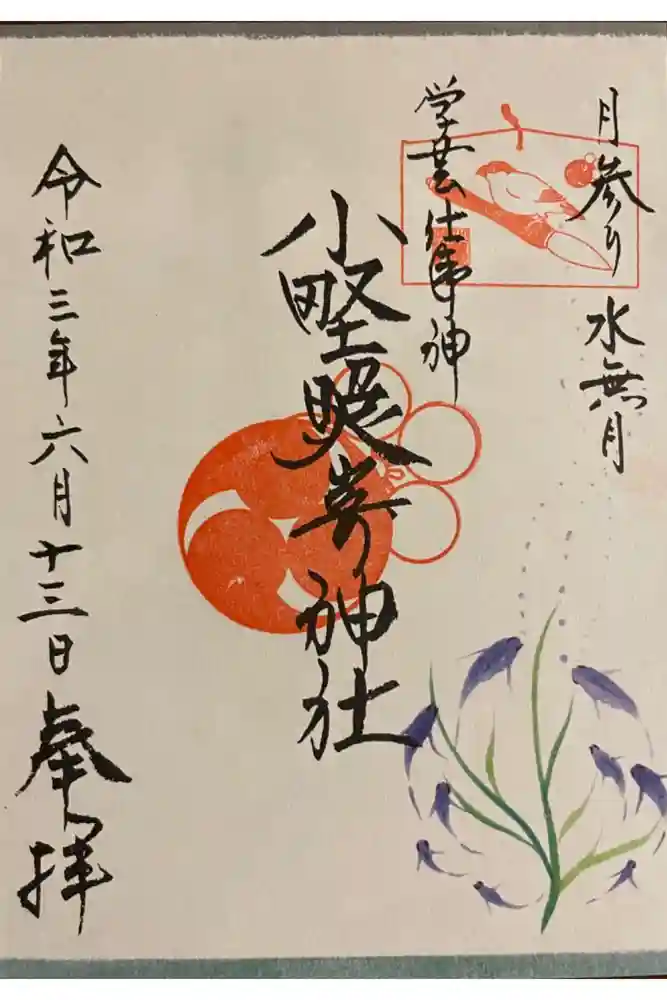 月参り 水無月
学芸仕事神
小野照崎神社
令和三年六月十三日 奉拝